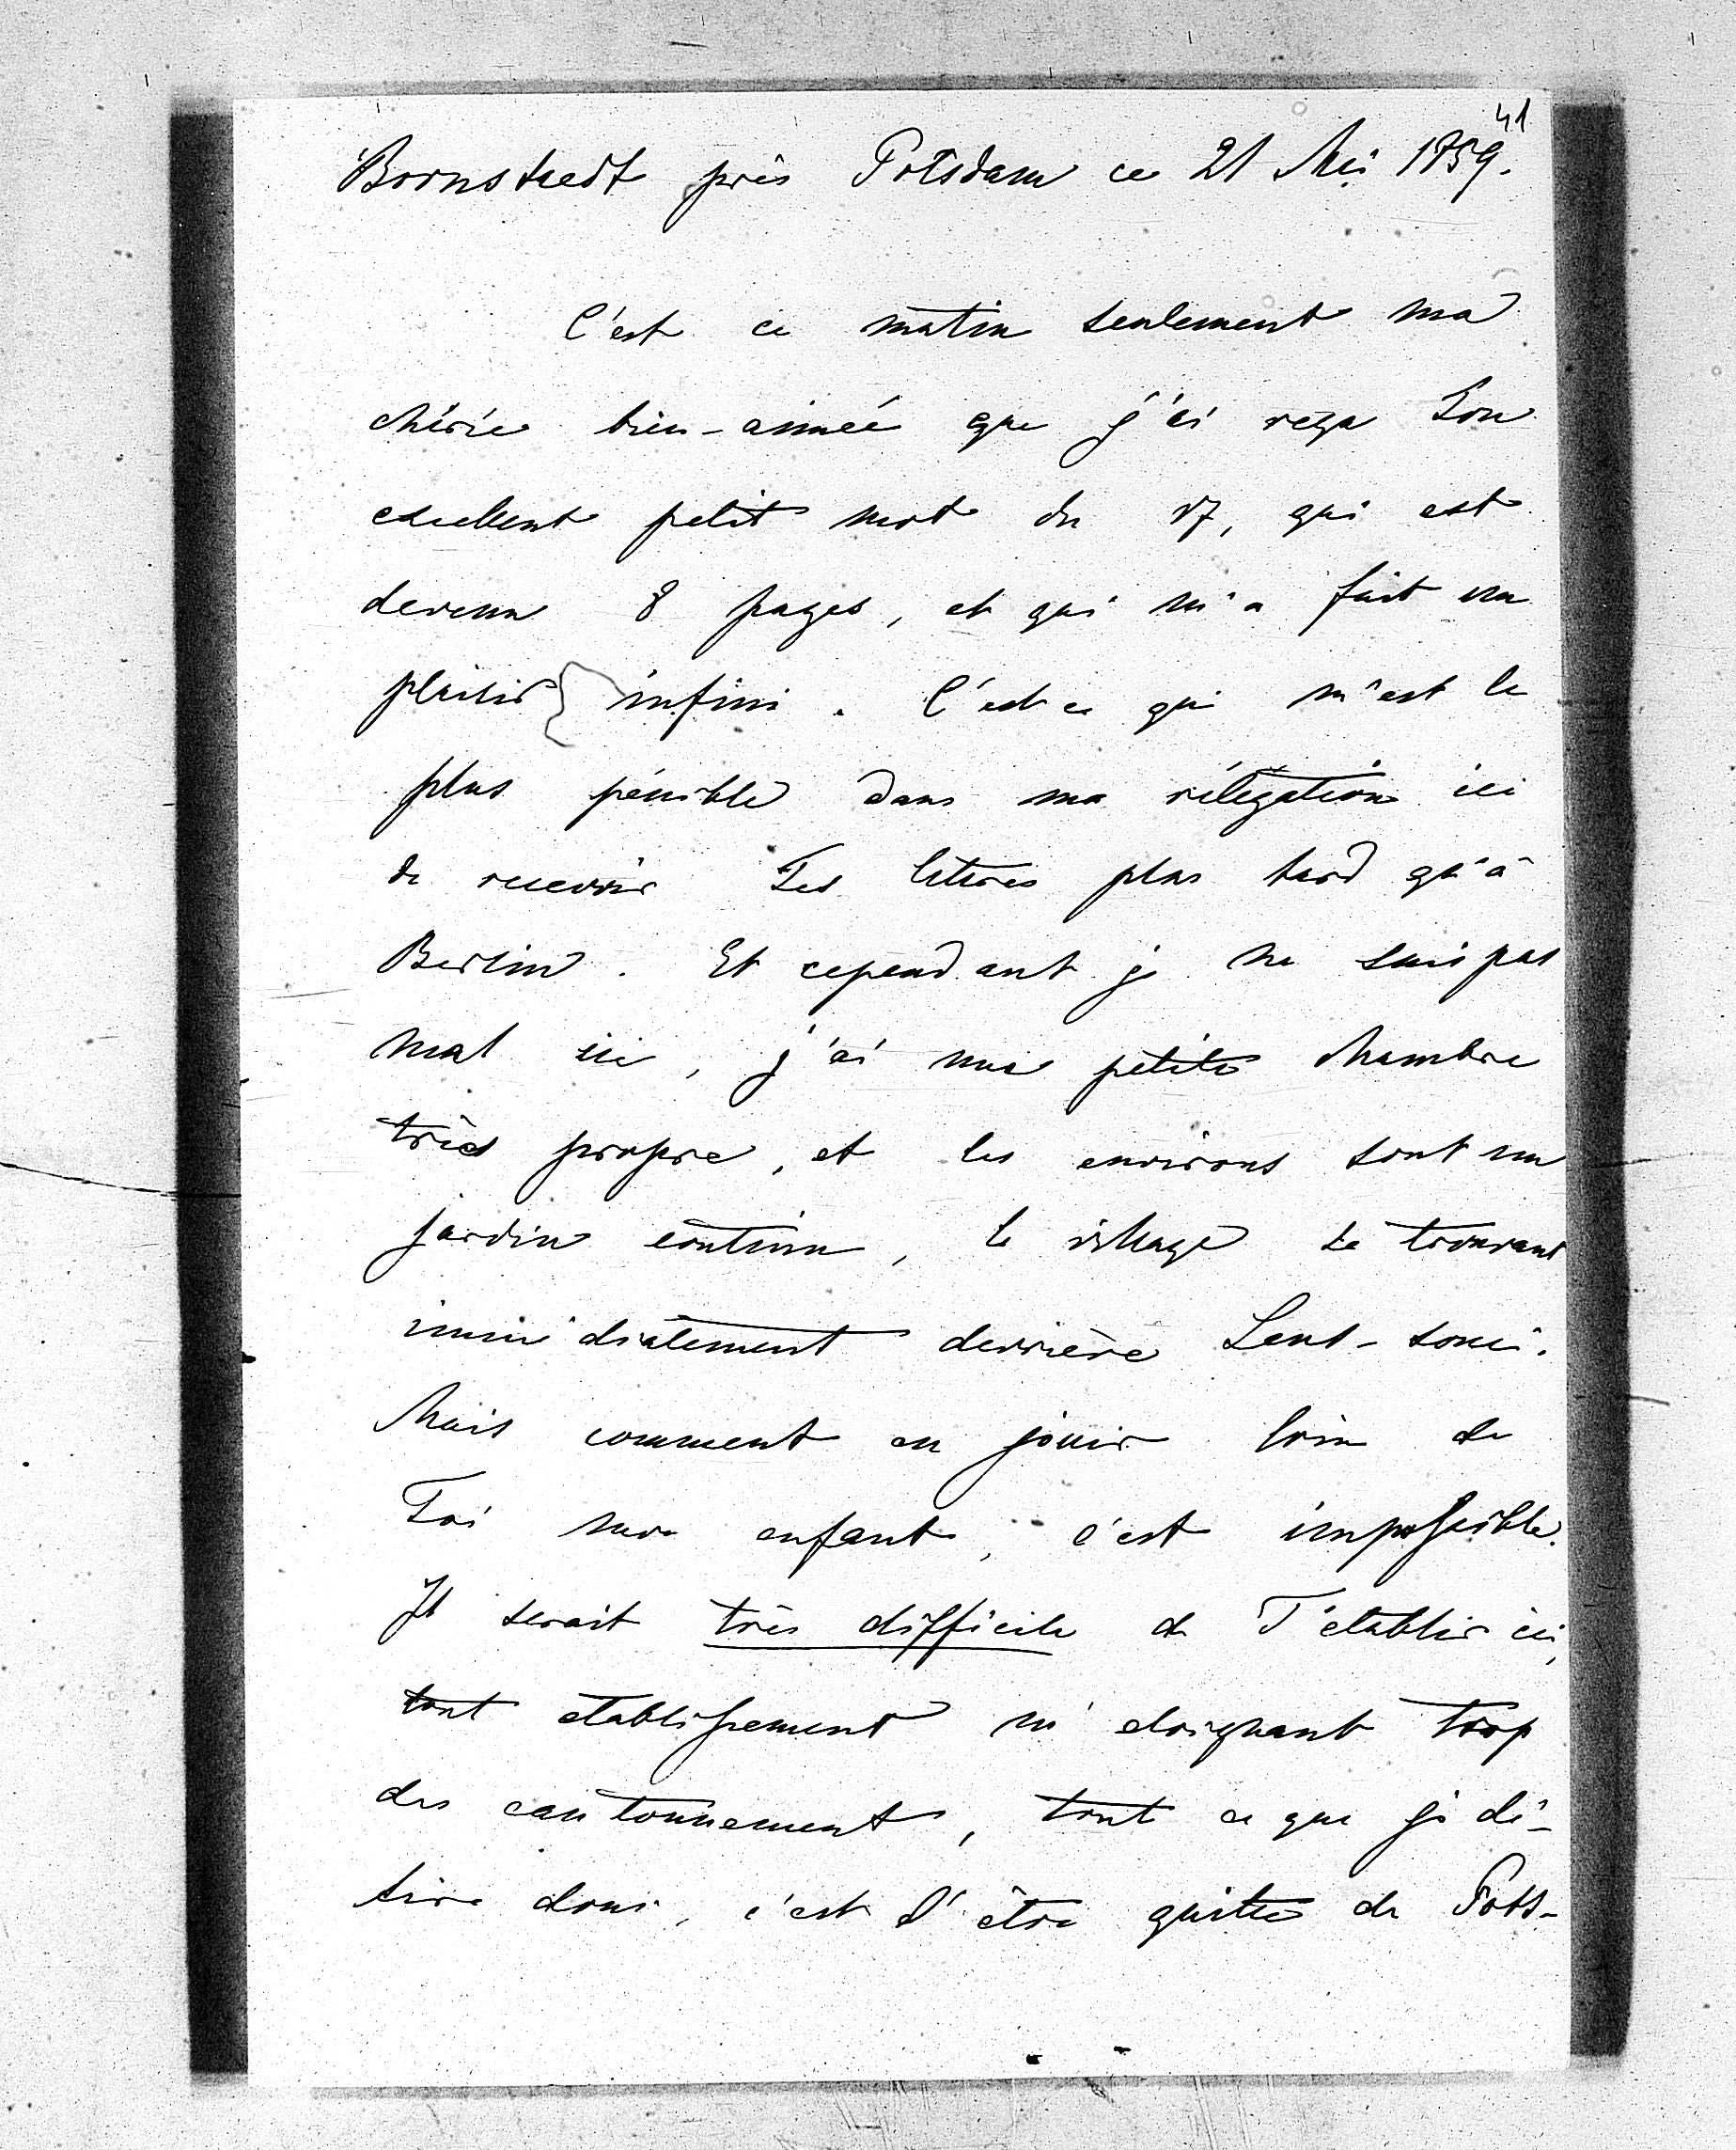 41
Bornstaedt près Potsdam ce 21 Mai 1859.
C'est ce matin seulement ma
chérie bien-aimée que j'ai reçu Ton
excellent petit mot du 17, qui est
devenu 8 pages, et qui m'a fait un
plaisir infini. C'est ce qui m'est le
plus pénible dans ma rélégation ici
de recevoir Tes lettres plus tard qu'à
Berlin. Et cependant je ne suis pas
mal ici, j'ai une petite chambre
très propre, et les environs sont un
jardin continu, le village se trouvant
immédiatement derrière Sans-souci.
Mais comment en jouir loin de
Toi mon enfant, c'est impossible.
Il serait très difficile de T'etablir ici,
tout etablissement m'eloignant trop
des cantonnements, tout ce que je dé-
sire donc, c'est d'être quitte de Pots-